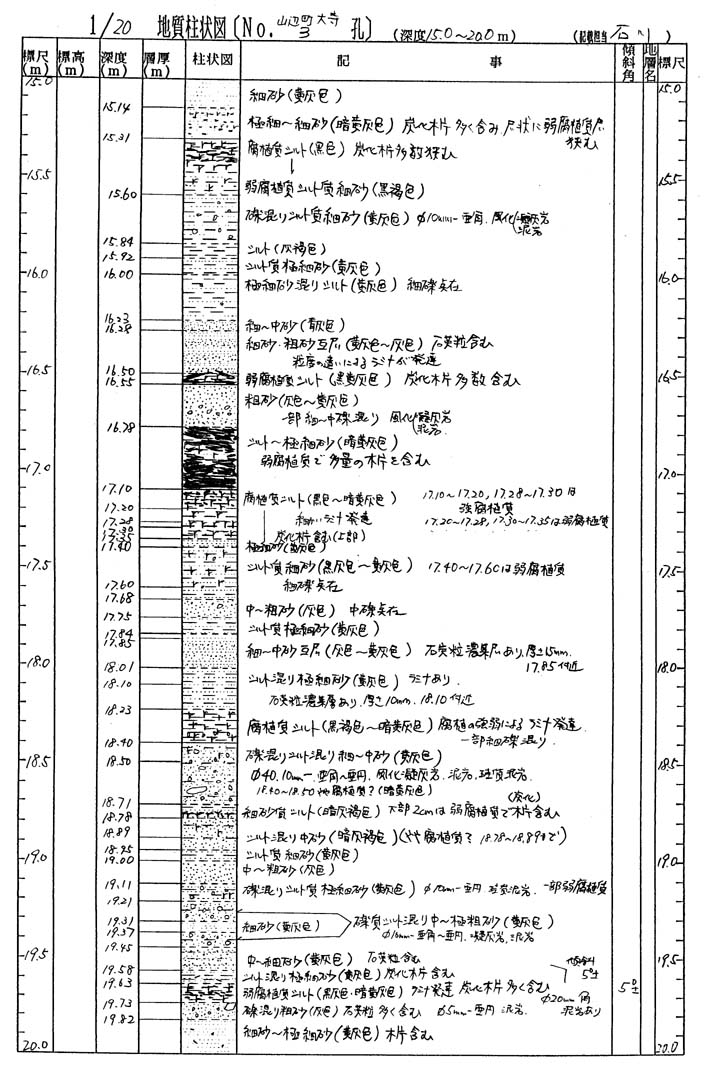 1/20 地質柱状図〔No. 山辺町大寺 3 孔〕 (深度15.0～20.0m) (記載担当 石川)
標尺(m) 標高(m) 深度(m) 層厚(m) 柱状図 記事 傾斜角 地層名 標尺(m)
15.0 15.0
細砂(黄灰色)
15.14
極細～細砂(暗黄灰色) 炭化木片多く含み、尺状に弱腐植質层
狭む
15.31
腐植質シルト(黒色) 炭化木片多数狭む
15.5 15.5
弱腐植質シルト質細砂(黒褐色)
15.60
礫混りシルト質細砂(黄灰色) φ10mm-亜角、風化凝灰岩
泥岩
15.84
シルト(灰褐色)
15.92
シルト質極細砂(黄灰色)
16.0 16.00 16.0
極細砂混りシルト(黄灰色) 細礫点在
16.23
細～中砂(黄灰色)
16.28
細砂・粗砂互层(黄灰色～灰色) 石英粒含む
粒度の違いによるラミナが発達
16.5 16.50 16.5
16.55
弱腐植質シルト(黒黄灰色) 炭化木片多数含む
粗砂(灰色～黄灰色)
一部細～中礫混り 風化凝灰岩
泥岩
16.78
シルト～極細砂(暗黄灰色)
弱腐植質で多量の木片を含む
17.0 17.0
17.10
腐植質シルト(黒色～暗黄灰色) 17.10～17.20, 17.28～17.30は
強腐植質
17.20
細かいラミナ発達 17.20～17.28, 17.30～17.35は弱腐植質
17.28
17.30
炭化木片含む(上部)
17.35
17.40
極細砂(黄灰色)
17.5 17.5
シルト質細砂(黒灰色～黄灰色) 17.40～17.60は弱腐植質
細礫点在
17.60
17.68
中～粗砂(灰色) 中礫点在
17.75
シルト質極細砂(黄灰色)
17.84
17.85
細～中砂互层(灰色～黄灰色) 石英粒濃集层あり、厚さ15mm、
17.85付近
18.0 18.01 18.0
シルト混り極細砂(黄灰色) ラミナあり、
18.10
石英粒濃集層あり、厚さ10mm、18.10付近
18.23
腐植質シルト(黒褐色～暗黄灰色) 腐植の強弱によるラミナ発達、
一部細礫混り、
18.40
礫混りシルト混り細～中砂(黄灰色)
18.5 18.50 18.5
φ40.10mm-亜角～亜円、風化凝灰岩、泥岩、珪質泥岩、
18.40～18.50やや腐植質?(暗黄灰色)
18.71
(炭化)
細砂質シルト(暗灰褐色) 下部2cmは弱腐植質で木片含む
18.78
18.89
シルト混り中砂(暗灰褐色)(やや腐植質? 18.78～18.89まで)
18.95
シルト質細砂(黄灰色)
19.0 19.00 19.0
中～粗砂(灰色)
19.11
礫混りシルト質極細砂(黄灰色) φ10mm-亜円 珪質泥岩、一部弱腐植質
19.21
19.31
細砂(黄灰色) 礫質シルト混り中～極粗砂(黄灰色)
19.37
φ10mm-亜角～亜円、凝灰岩、泥岩
19.45
19.5 19.5
中～細砂(黄灰色) 石英粒含む
19.58
シルト混り極細砂(黄灰色) 炭化木片含む 傾斜 5°±
19.63
弱腐植質シルト(黒灰色・暗黄灰色) ラミナ発達 炭化木片多く含む 5°±
19.73
礫混り粗砂(灰色) 石英粒多く含む φ5mm-亜円 泥岩、 φ20mm角 泥岩あり
19.82
細砂～極細砂(黄灰色) 木片含む
20.0 20.0